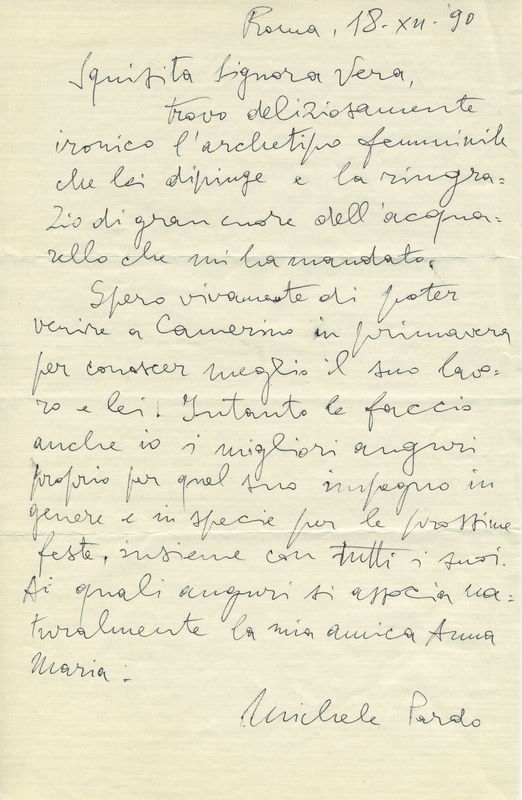 Roma, 18-XII-'90
Squisita Signora Vera,
trovo deliziosamente
ironico l'archetipo femminile
che lei dipinge e la ringra=
zio di gran cuore dell'acqua=
rello che mi ha mandato.
Spero vivamente di poter
venire a Camerino in primavera
per conoscer meglio il suo lavo=
ro e lei. Intanto le faccio
anche io i migliori auguri
proprio per quel suo impegno in
genere e in specie per le prossime
feste, insieme con tutti i suoi.
Ai quali auguri si associa na=
turalmente la mia amica Anna
Maria.
Michele Pardo